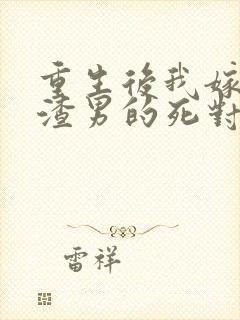 重生後我嫁
渣男的死對
雷祥